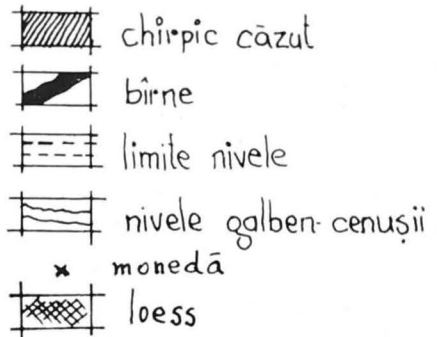 chirpic căzut
bîrne
limite nivele
nivele galben-cenuşii
monedă
loess